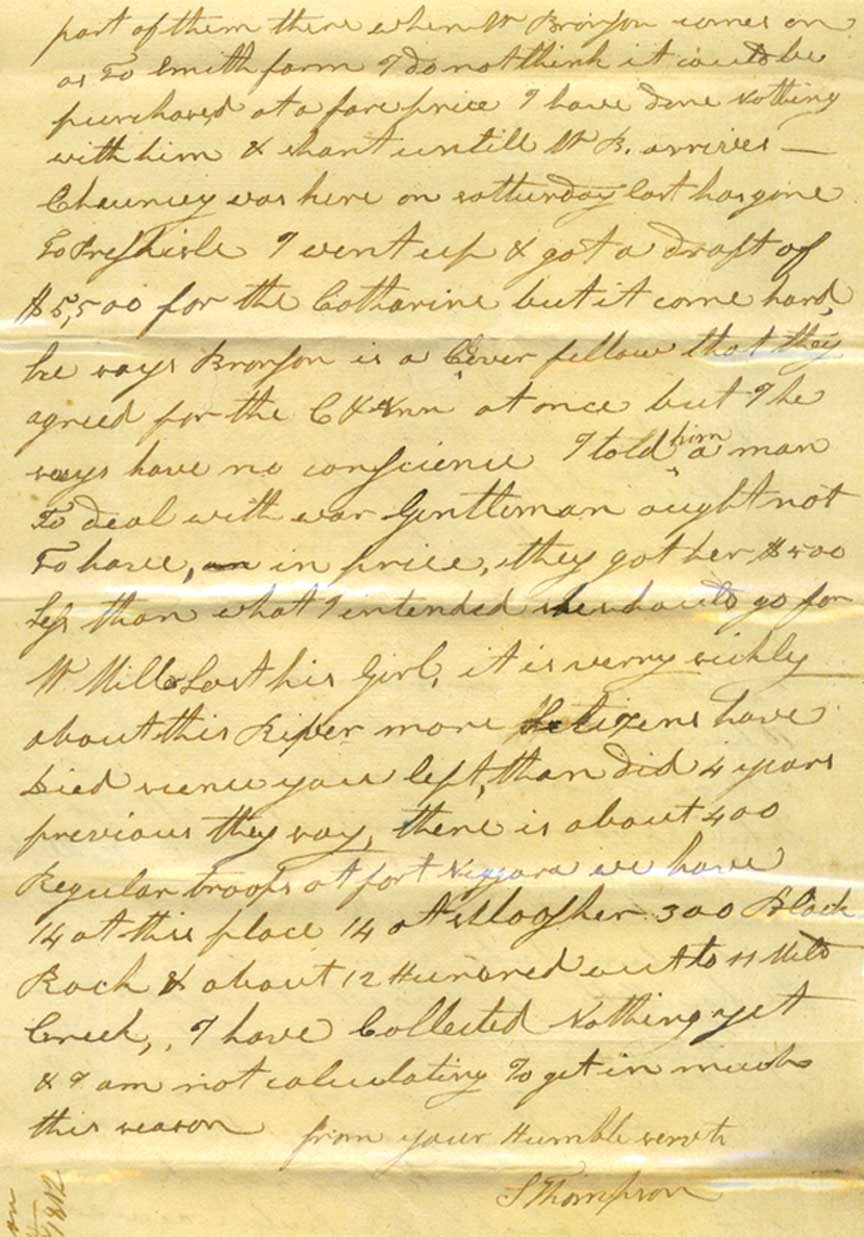 part of them there when Mr Bronson comes on
as To Smith farm I do not think it could be
purchased at a fare price I have done Nothing
with him & shant untill Mr B. arrives —
Chauncey was here on satturday last has gone
To Presqisle I went up & got a draft of
$5,500 for the Catharine but it come hard,
he says Bronson is a Clever fellow that they
agreed for the C & Ann at once but I he
says have no conscience I told him a man
To deal with war Gentleman ought not
To have, in price, they got her $500
Less than what I intended she should go for
Mr Miller Lost his Girl, it is verry sickly
about this River more Citizens have
Died sience you left, than did 4 years
previous they say, there is about 400
Regular troops at fort Niagara we have
14 at this place 14 at Slogher 300 Black
Rock & about 12 Hundred out to 11 Mile
Creek,, I have Collected Nothing yet
& I am not calculating To get in much
this season from your Humble servt
S Thompson
on
1812